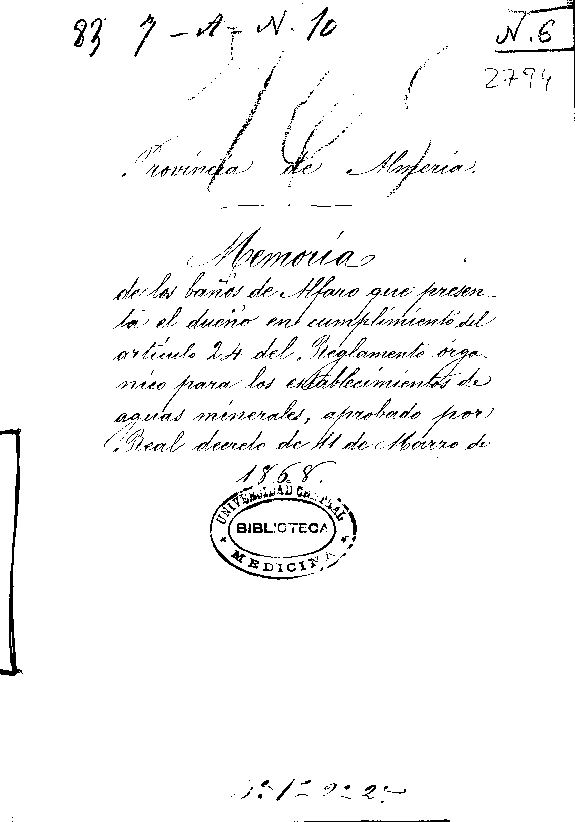 83 7-A-N. 10
N. 6
2794
Provincia de Almeria.
Memoria
de los baños de Alfaro que presen-
ta el dueño en cumplimiento del
articulo 24 del Reglamento orga-
nico para los establecimientos de
aguas minerales, aprobado por
Real decreto de 11 de Marzo de
1868.
UNIVERSIDAD CENTRAL
BIBLIOTECA
MEDICINA